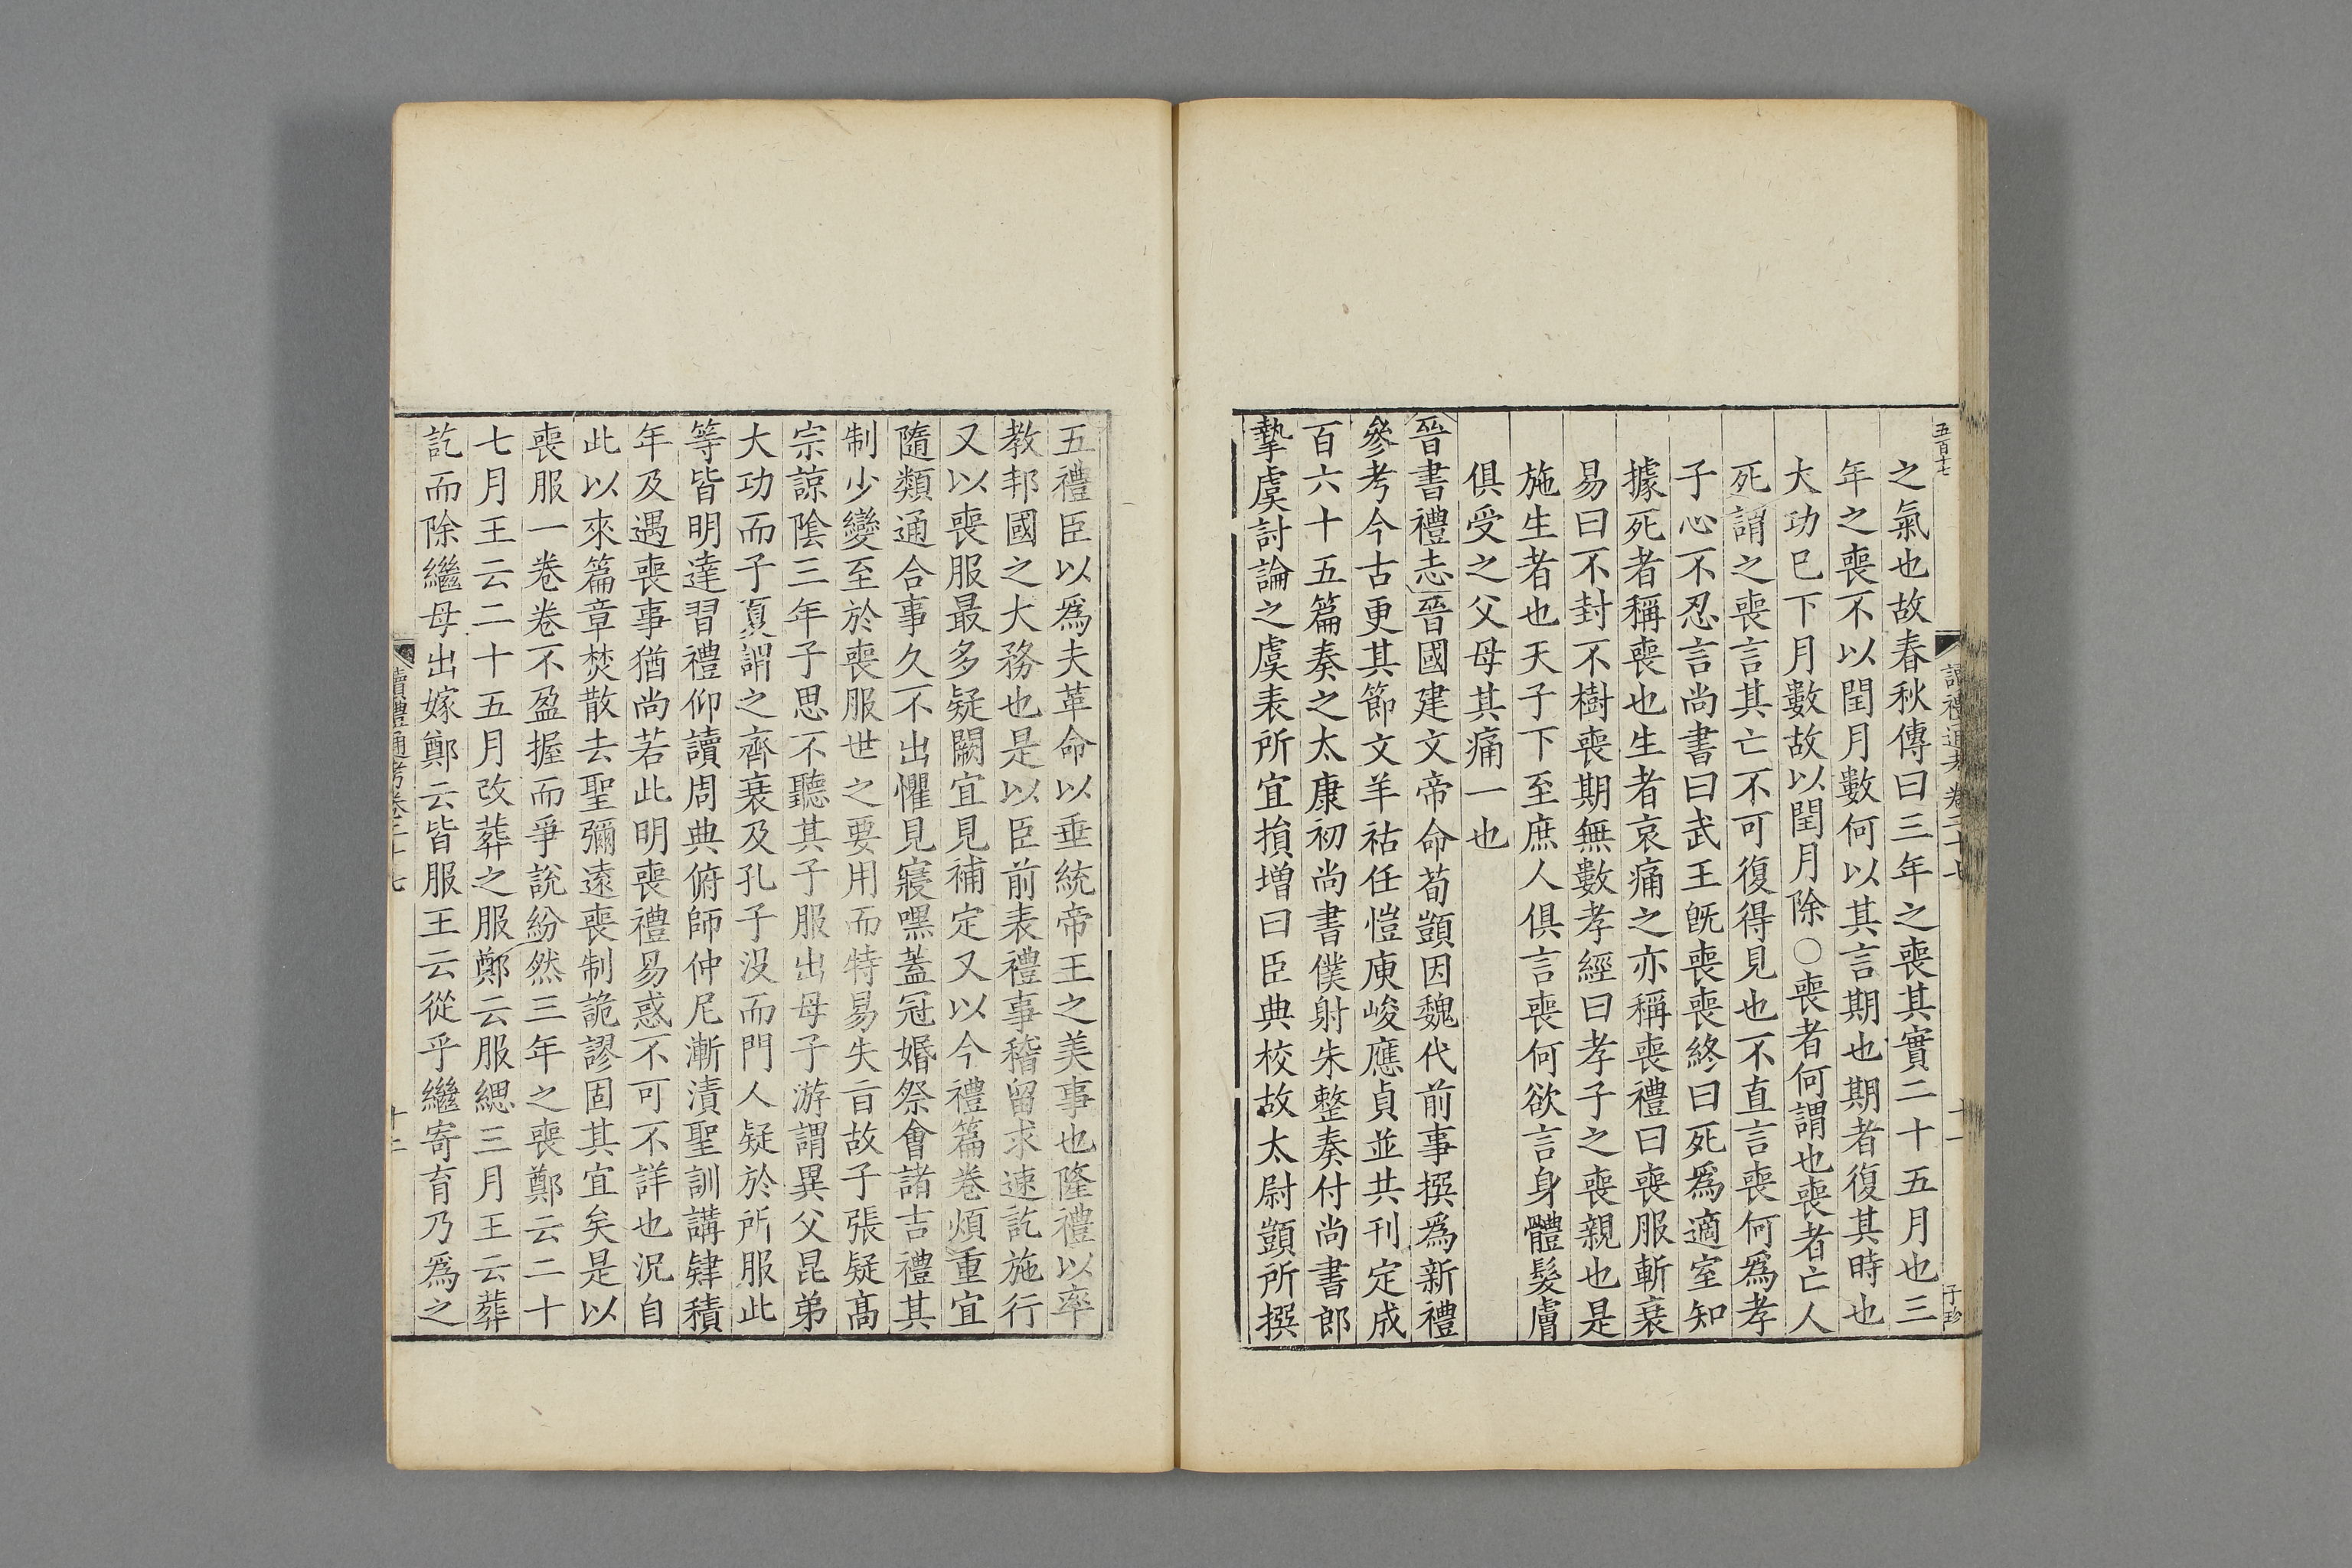 五百十七
讀禮通考 卷二十七
十一
子珍
之氣也故春秋傳曰三年之喪其實二十五月也三
年之喪不以閏月數何以其言期也期者復其時也
大功已下月數故以閏月除○喪者何謂也喪者亡人
死謂之喪言其亡不可復得見也不直言喪何爲孝
子心不忍言尚書曰武王旣喪喪終曰死爲適室知
據死者稱喪也生者哀痛之亦稱喪禮曰喪服斬衰
易曰不封不樹喪期無數孝經曰孝子之喪親也是
施生者也天子下至庶人俱言喪何欲言身體髮膚
俱受之父母其痛一也
晉書禮志晉國建文帝命荀顗因魏代前事撰爲新禮
參考今古更其節文羊祜任愷庾峻應貞並共刊定成
百六十五篇奏之太康初尚書僕射朱整奏付尚書郎
摯虞討論之虞表所宜損增曰臣典校故太尉顗所撰
五禮臣以爲夫革命以垂統帝王之美事也隆禮以率
教邦國之大務也是以臣前表禮事稽留求速訖施行
又以喪服最多疑闕宜見補定又以今禮篇卷煩重宜
隨類通合事久不出懼見寢嘿蓋冠婚祭會諸吉禮其
制少變至於喪服世之要用而特易失旨故子張疑高
宗諒陰三年子思不聽其子服出母子游謂異父昆弟
大功而子夏謂之齊衰及孔子没而門人疑於所服此
等皆明達習禮仰讀周典俯師仲尼漸漬聖訓講肄積
年及遇喪事猶尚若此明喪禮易惑不可不詳也況自
此以來篇章焚散去聖彌遠喪制詭謬固其宜矣是以
喪服一卷卷不盈握而爭說紛然三年之喪鄭云二十
七月王云二十五月改葬之服鄭云服緦三月王云葬
訖而除繼母出嫁鄭云皆服王云從乎繼寄育乃爲之
讀禮通考卷二十七